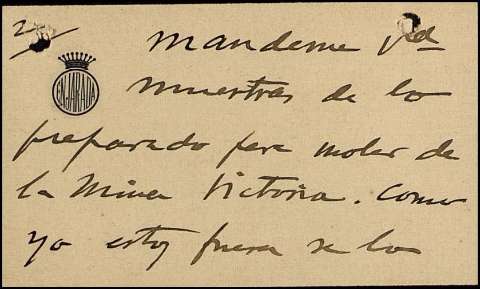 2
mandeme Vd
ENJARADA
muestras de lo
preparado para moler de
la Mina Victoria. Como
yo estoy fuera se lo